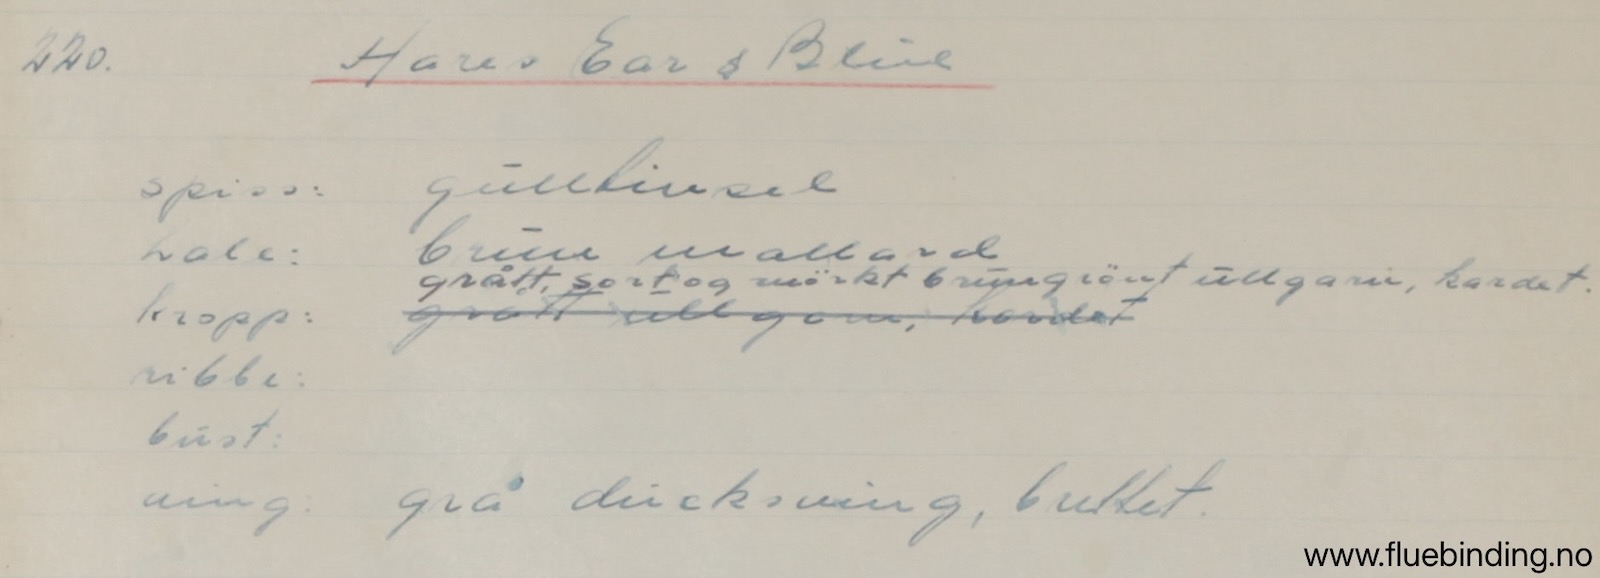 220. Hares Ear & Blue
spiss: gulltinsel
hale: brun mallard
grått, sort og mörkt brungrönt ullgarn, kardet.
kropp: grått ullgarn, kardet
ribbe:
bust:
ving: grå duckswing, buttet.
www.fluebinding.no